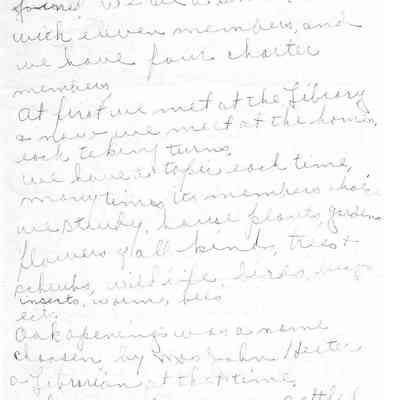 with eleven members, and
we have four charter
members.
At first we met at the Library
& now we meet at the homes,
each taking turns.
We have a topic each time,
many times its members choice
we study, house plants, gardens
flowers of all kinds, trees &
schrubs, wildlife, birds, bugs
inserts, worms, bees
ect.
Oak openings was a name
choosen by Mrs John Heeter
a Librarian at that time.